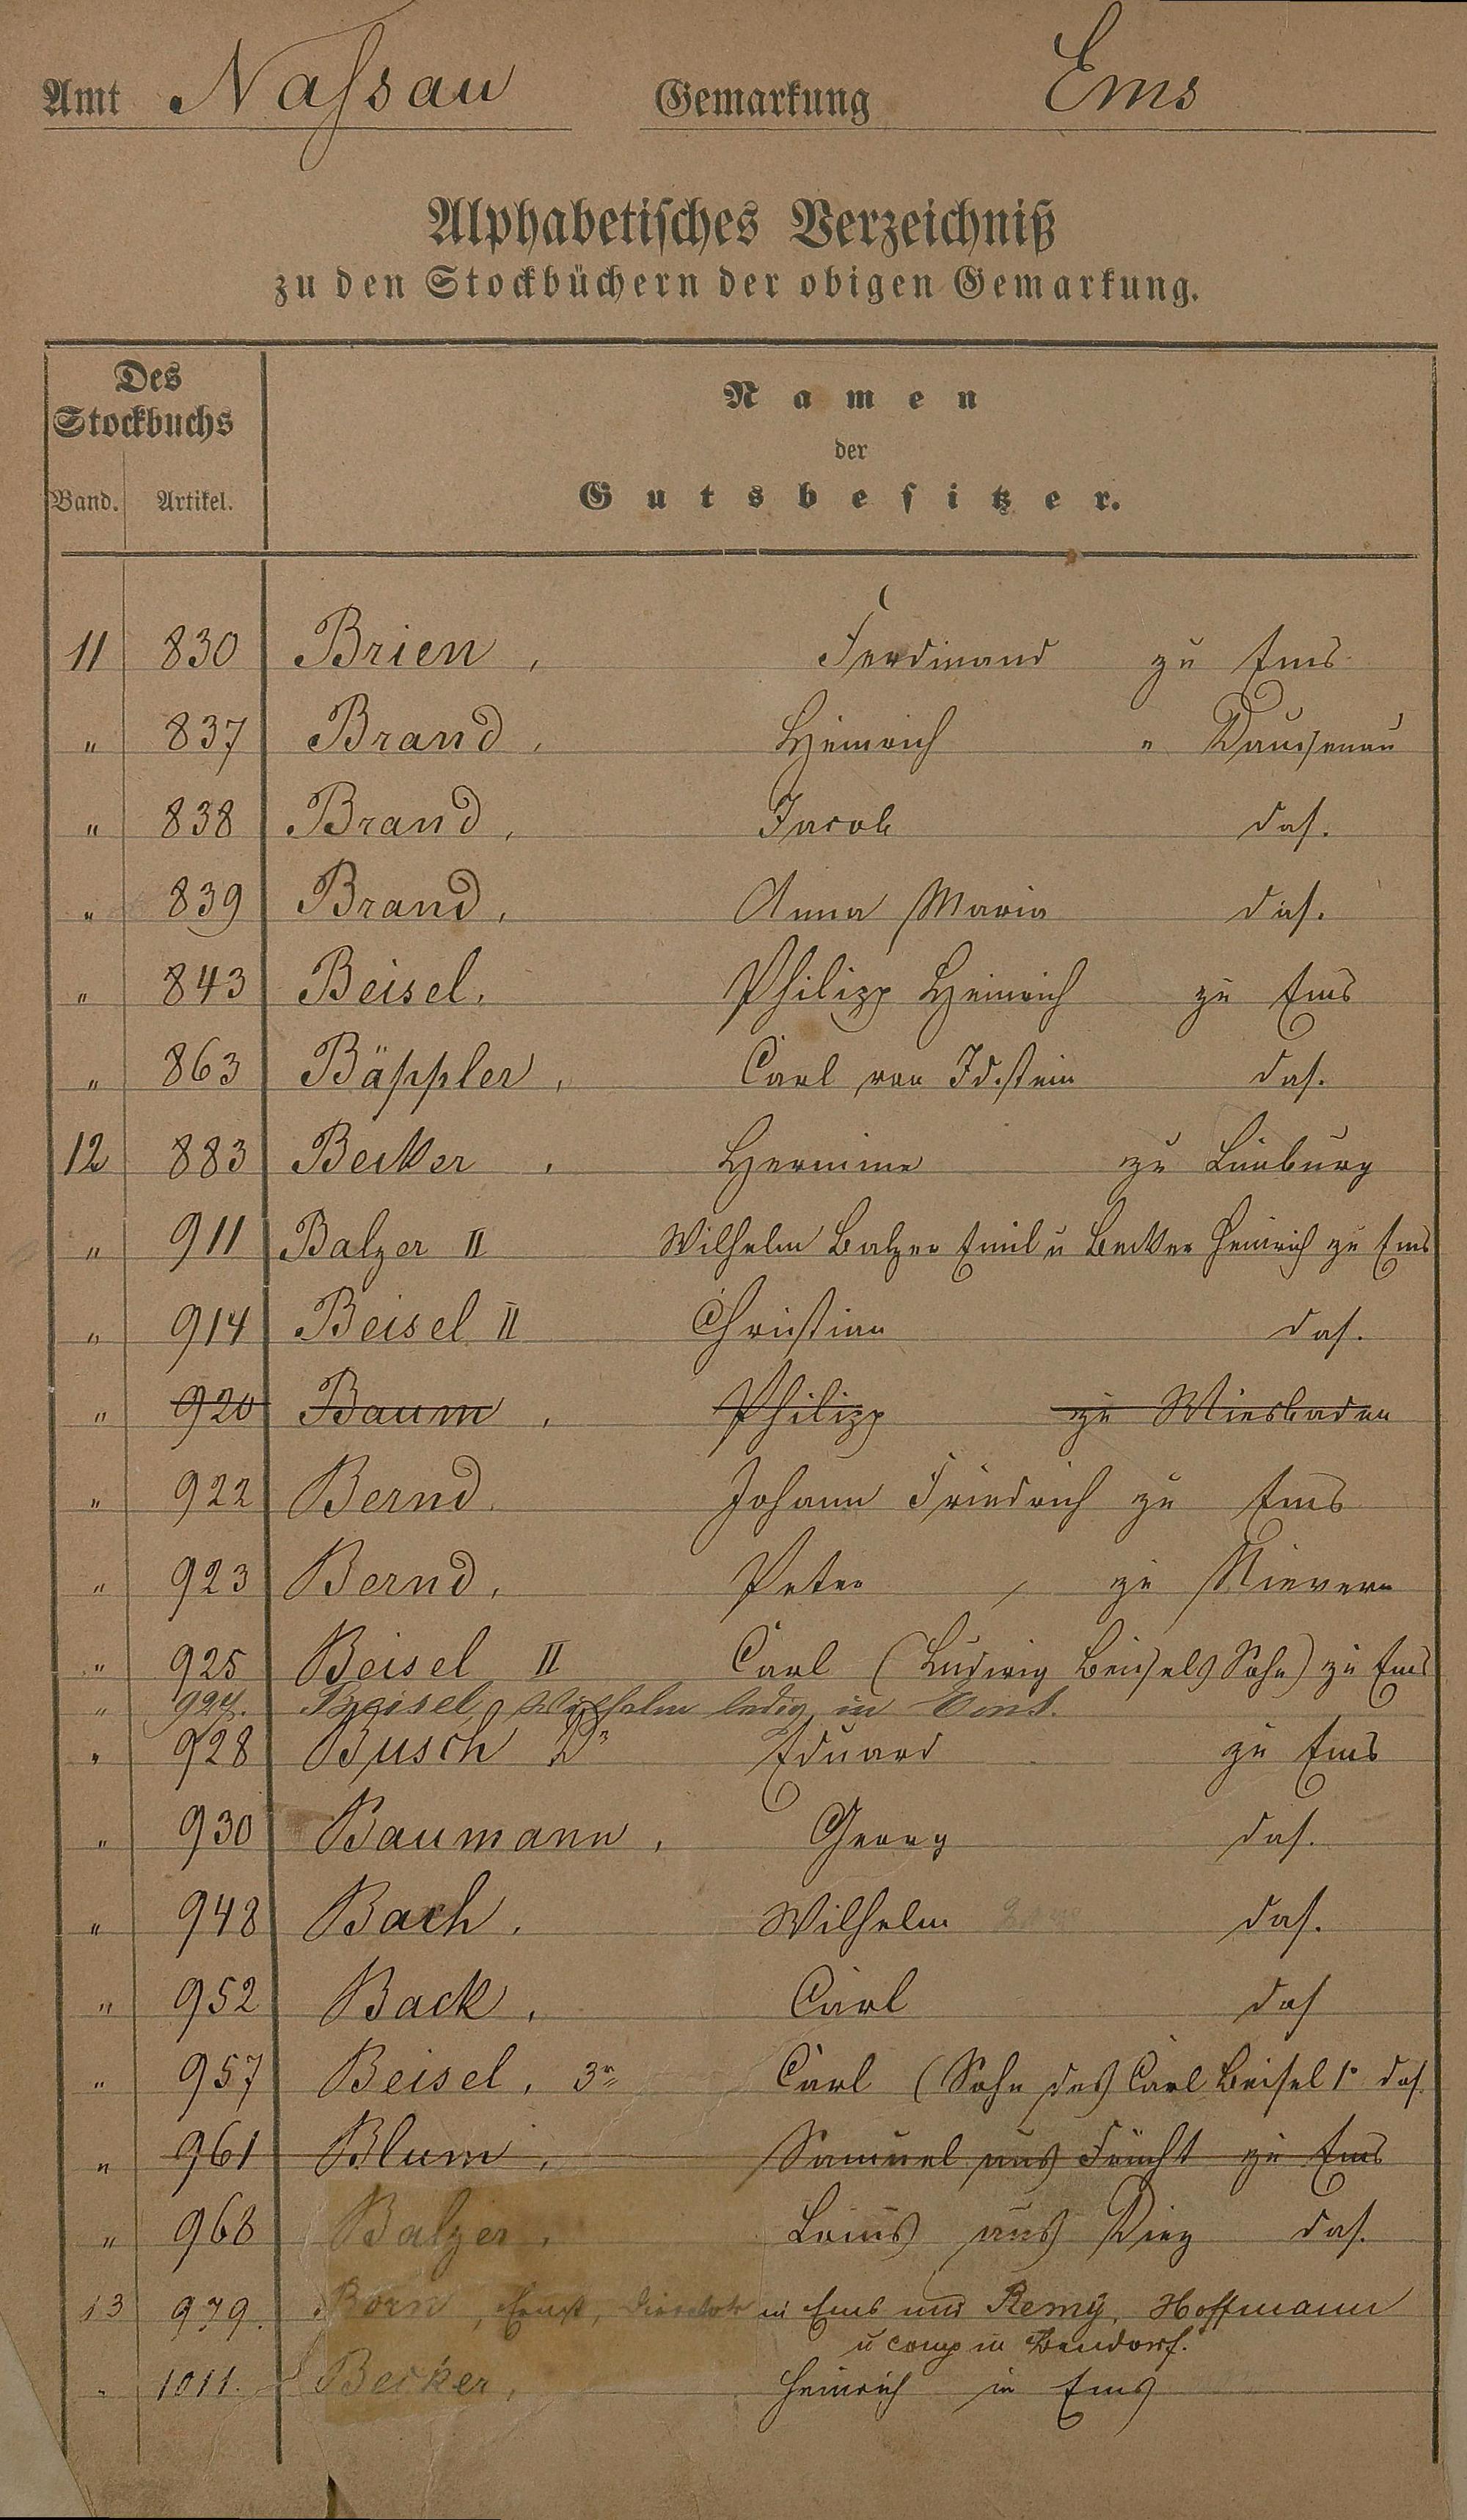 Amt Naſsau Gemarkung Ems
Alphabetiſches Verzeichniß
zu den Stockbüchern der obigen Gemarkung.
Des
Stockbuchs
Band. Artikel.
Namen
der
Gutsbeſitzer.
11 830 Brien, Ferdinand zu Ems
" 837 Brand, Heinrich " Dausenau
" 838 Brand, Jacob daſ.
" 839 Brand, Anna Maria daſ.
" 843 Beisel, Philipp Heinrich zu Ems
" 863 Bäppler, Carl von Idstein daſ.
12 883 Becker, Hermine zu Limburg
" 911 Balzer II Wilhelm Balzer Emil u Becker Heinrich zu Ems
" 914 Beisel II Christian daſ.
" 920 Baum, Philipp zu Wiesbaden
" 922 Bernd. Johann Friedrich zu Ems
" 923 Bernd, Peter, zu Nievern
" 925 Beisel II Carl (Ludwig Beisels Sohn) zu Ems
" 927. Beisel, Wilhelm ledig in Ems.
" 928 Busch Dr Eduard zu Ems
" 930 Baumann, Georg daſ.
" 948 Bach, Wilhelm daſ.
" 952 Back, Carl daſ
" 957 Beisel, 3r Carl (Sohn des Carl Beisel 1r daſ.
" 961 Blum, Samuel aus Frücht zu Ems
" 968 Balzer, Louis aus Diez daſ.
13 979. Born, Ernst, Director in Ems und Remy, Hoffmann
u comp in Bendorf.
" 1011. Becker, Heinrich in Ems